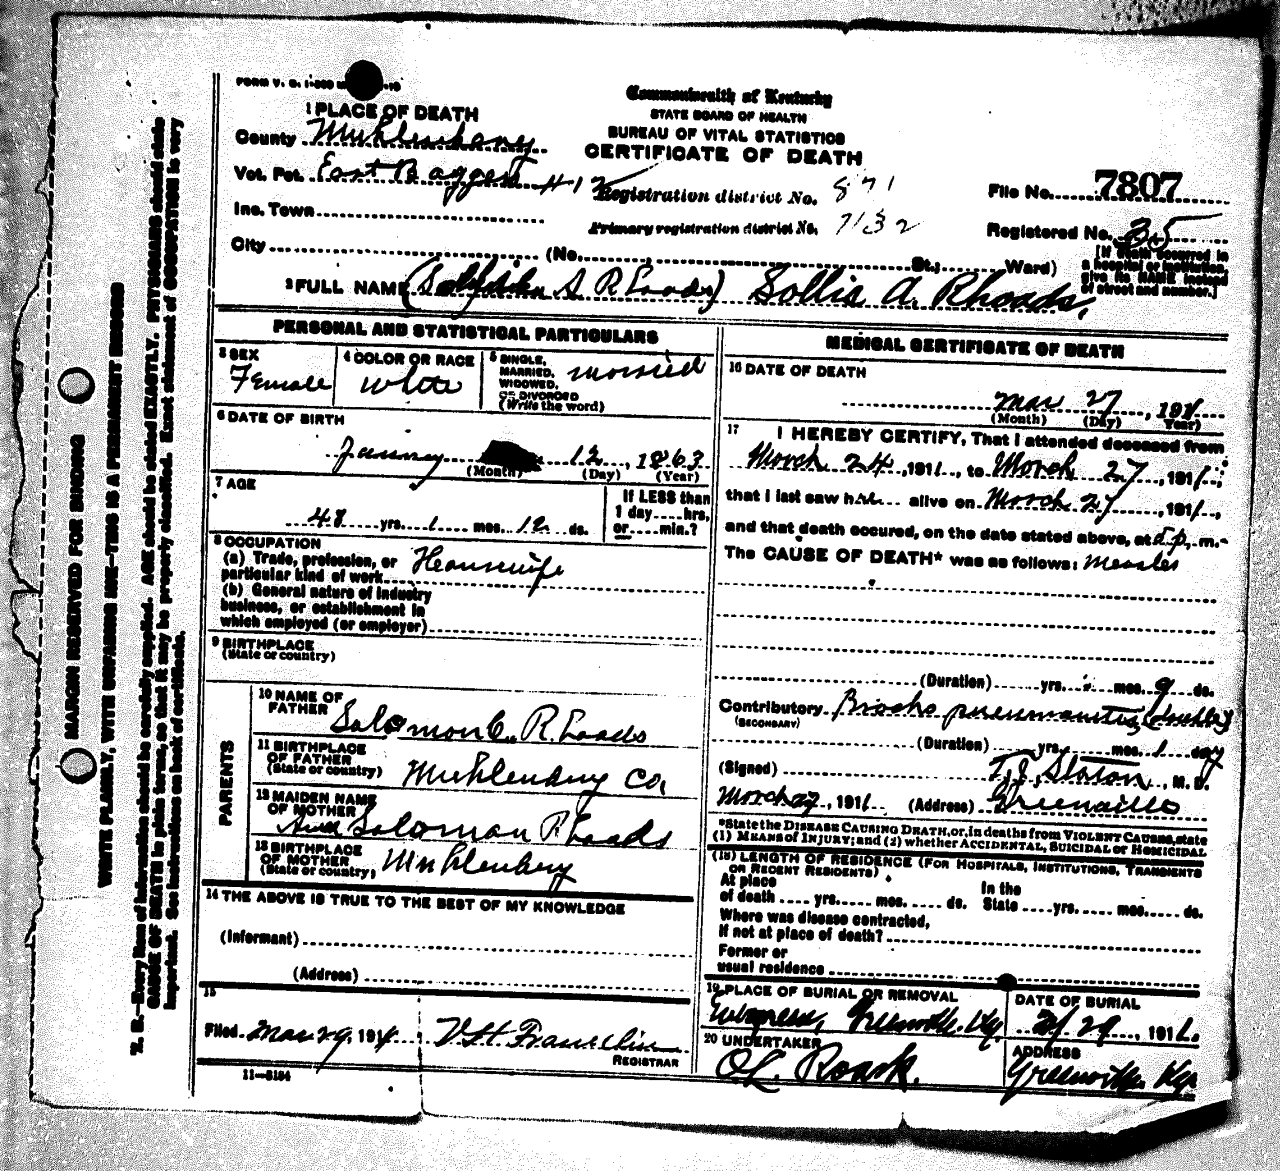 FORM V. S. 1-
1 PLACE OF DEATH
County Muhlenberg
Vot. Pct. East Baggest #12
Inc. Town
City (No. St.; Ward)
Commonwealth of Kentucky
STATE BOARD OF HEALTH
BUREAU OF VITAL STATISTICS
CERTIFICATE OF DEATH
Registration district No. 871
Primary registration district No. 7132
File No. 7807
Registered No. 35
[If death occurred in
a hospital or institution,
give its NAME instead
of street and number.]
2 FULL NAME ( S A Rhoads) Sollie A. Rhoads,
PERSONAL AND STATISTICAL PARTICULARS
3 SEX
Female
4 COLOR OR RACE
White
5 SINGLE,
MARRIED,
WIDOWED,
OR DIVORCED
(Write the word)
Married
6 DATE OF BIRTH
January 12, 1863
(Month) (Day) (Year)
7 AGE
48 yrs. 1 mos. 12 ds.
If LESS than
1 day hrs.
or min.?
8 OCCUPATION
(a) Trade, profession, or
particular kind of work Housewife
(b) General nature of industry
business, or establishment in
which employed (or employer)
9 BIRTHPLACE
(State or country)
PARENTS
10 NAME OF
FATHER Solomon C. Rhoads
11 BIRTHPLACE
OF FATHER
(State or country) Muhlenburg Co.
12 MAIDEN NAME
OF MOTHER
Solomon Rhoads
13 BIRTHPLACE
OF MOTHER
(State or country) Muhlenberg
14 THE ABOVE IS TRUE TO THE BEST OF MY KNOWLEDGE
(Informant)
(Address)
15
Filed Mar 29, 191 V H Franklin
REGISTRAR
11-5184
MEDICAL CERTIFICATE OF DEATH
16 DATE OF DEATH
Mar 27, 1911
(Month) (Day) (Year)
17 I HEREBY CERTIFY, That I attended deceased from
March 24, 1911, to March 27, 1911,
that I last saw her alive on March 27, 1911,
and that death occured, on the date stated above, at 5 p. m.
The CAUSE OF DEATH* was as follows: Measles
(Duration) yrs. mos. 9 ds.
Contributory Broncho pneumonitis (double)
(SECONDARY)
(Duration) yrs. mos. 1 day
(Signed) T. J. Slaton, M. D.
March 27, 1911 (Address) Greenville
*State the DISEASE CAUSING DEATH, or, in deaths from VIOLENT CAUSES, state
(1) MEANS OF INJURY; and (2) whether ACCIDENTAL, SUICIDAL or HOMICIDAL
(18) LENGTH OF RESIDENCE (FOR HOSPITALS, INSTITUTIONS, TRANSIENTS
OR RECENT RESIDENTS)
At place
of death yrs. mos. ds.
In the
State yrs. mos. ds.
Where was disease contracted,
if not at place of death?
Former or
usual residence
19 PLACE OF BURIAL OR REMOVAL
Evergreen, Greenville. Ky.
DATE OF BURIAL
3/29, 1911.
20 UNDERTAKER
O L Roark.
ADDRESS
Greenville. Ky
MARGIN RESERVED FOR BINDING
WRITE PLAINLY, WITH UNFADING INK—THIS IS A PERMANENT RECORD
N. B.—Every item of information should be carefully supplied. AGE should be stated EXACTLY. PHYSICIANS should state
CAUSE OF DEATH in plain terms, so that it may be properly classified. Exact statement of OCCUPATION is very
important. See instructions on back of certificate.